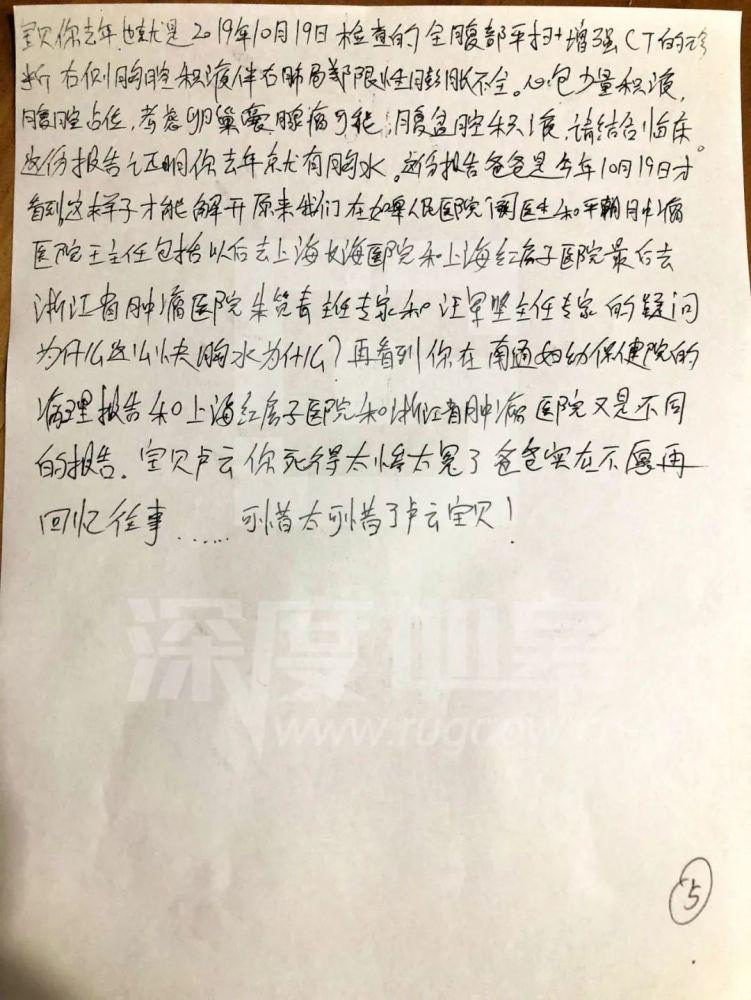 宝贝你去年也就是2019年10月19日检查的全腹部平扫+增强CT的诊
断右侧胸腔积液伴右肺局部限性膨胀不全。心包少量积液,
腹腔占位,考虑卵巢囊腺病可能;腹盆腔积液请结合临床。
这份报告已证明你去年就有胸水。这份报告爸爸是今年10月19日才
看到,这样子才能解开原来我们在如皋人民医院门医生和平潮肿瘤
医院王主任包括以后去上海长海医院和上海红房子医院最后去
浙江省肿瘤医院朱笕青主任专家和汪军坚主任专家的疑问
为什么这么快胸水为什么?再看到你在南通妇幼保健院的
病理报告和上海红房子医院和浙江省肿瘤医院又是不同
的报告。宝贝卢云你死得太惨太冤了爸爸实在不愿再
回忆往事......可惜太可惜了卢云宝贝!
深度地享
www.rugaow.com
5